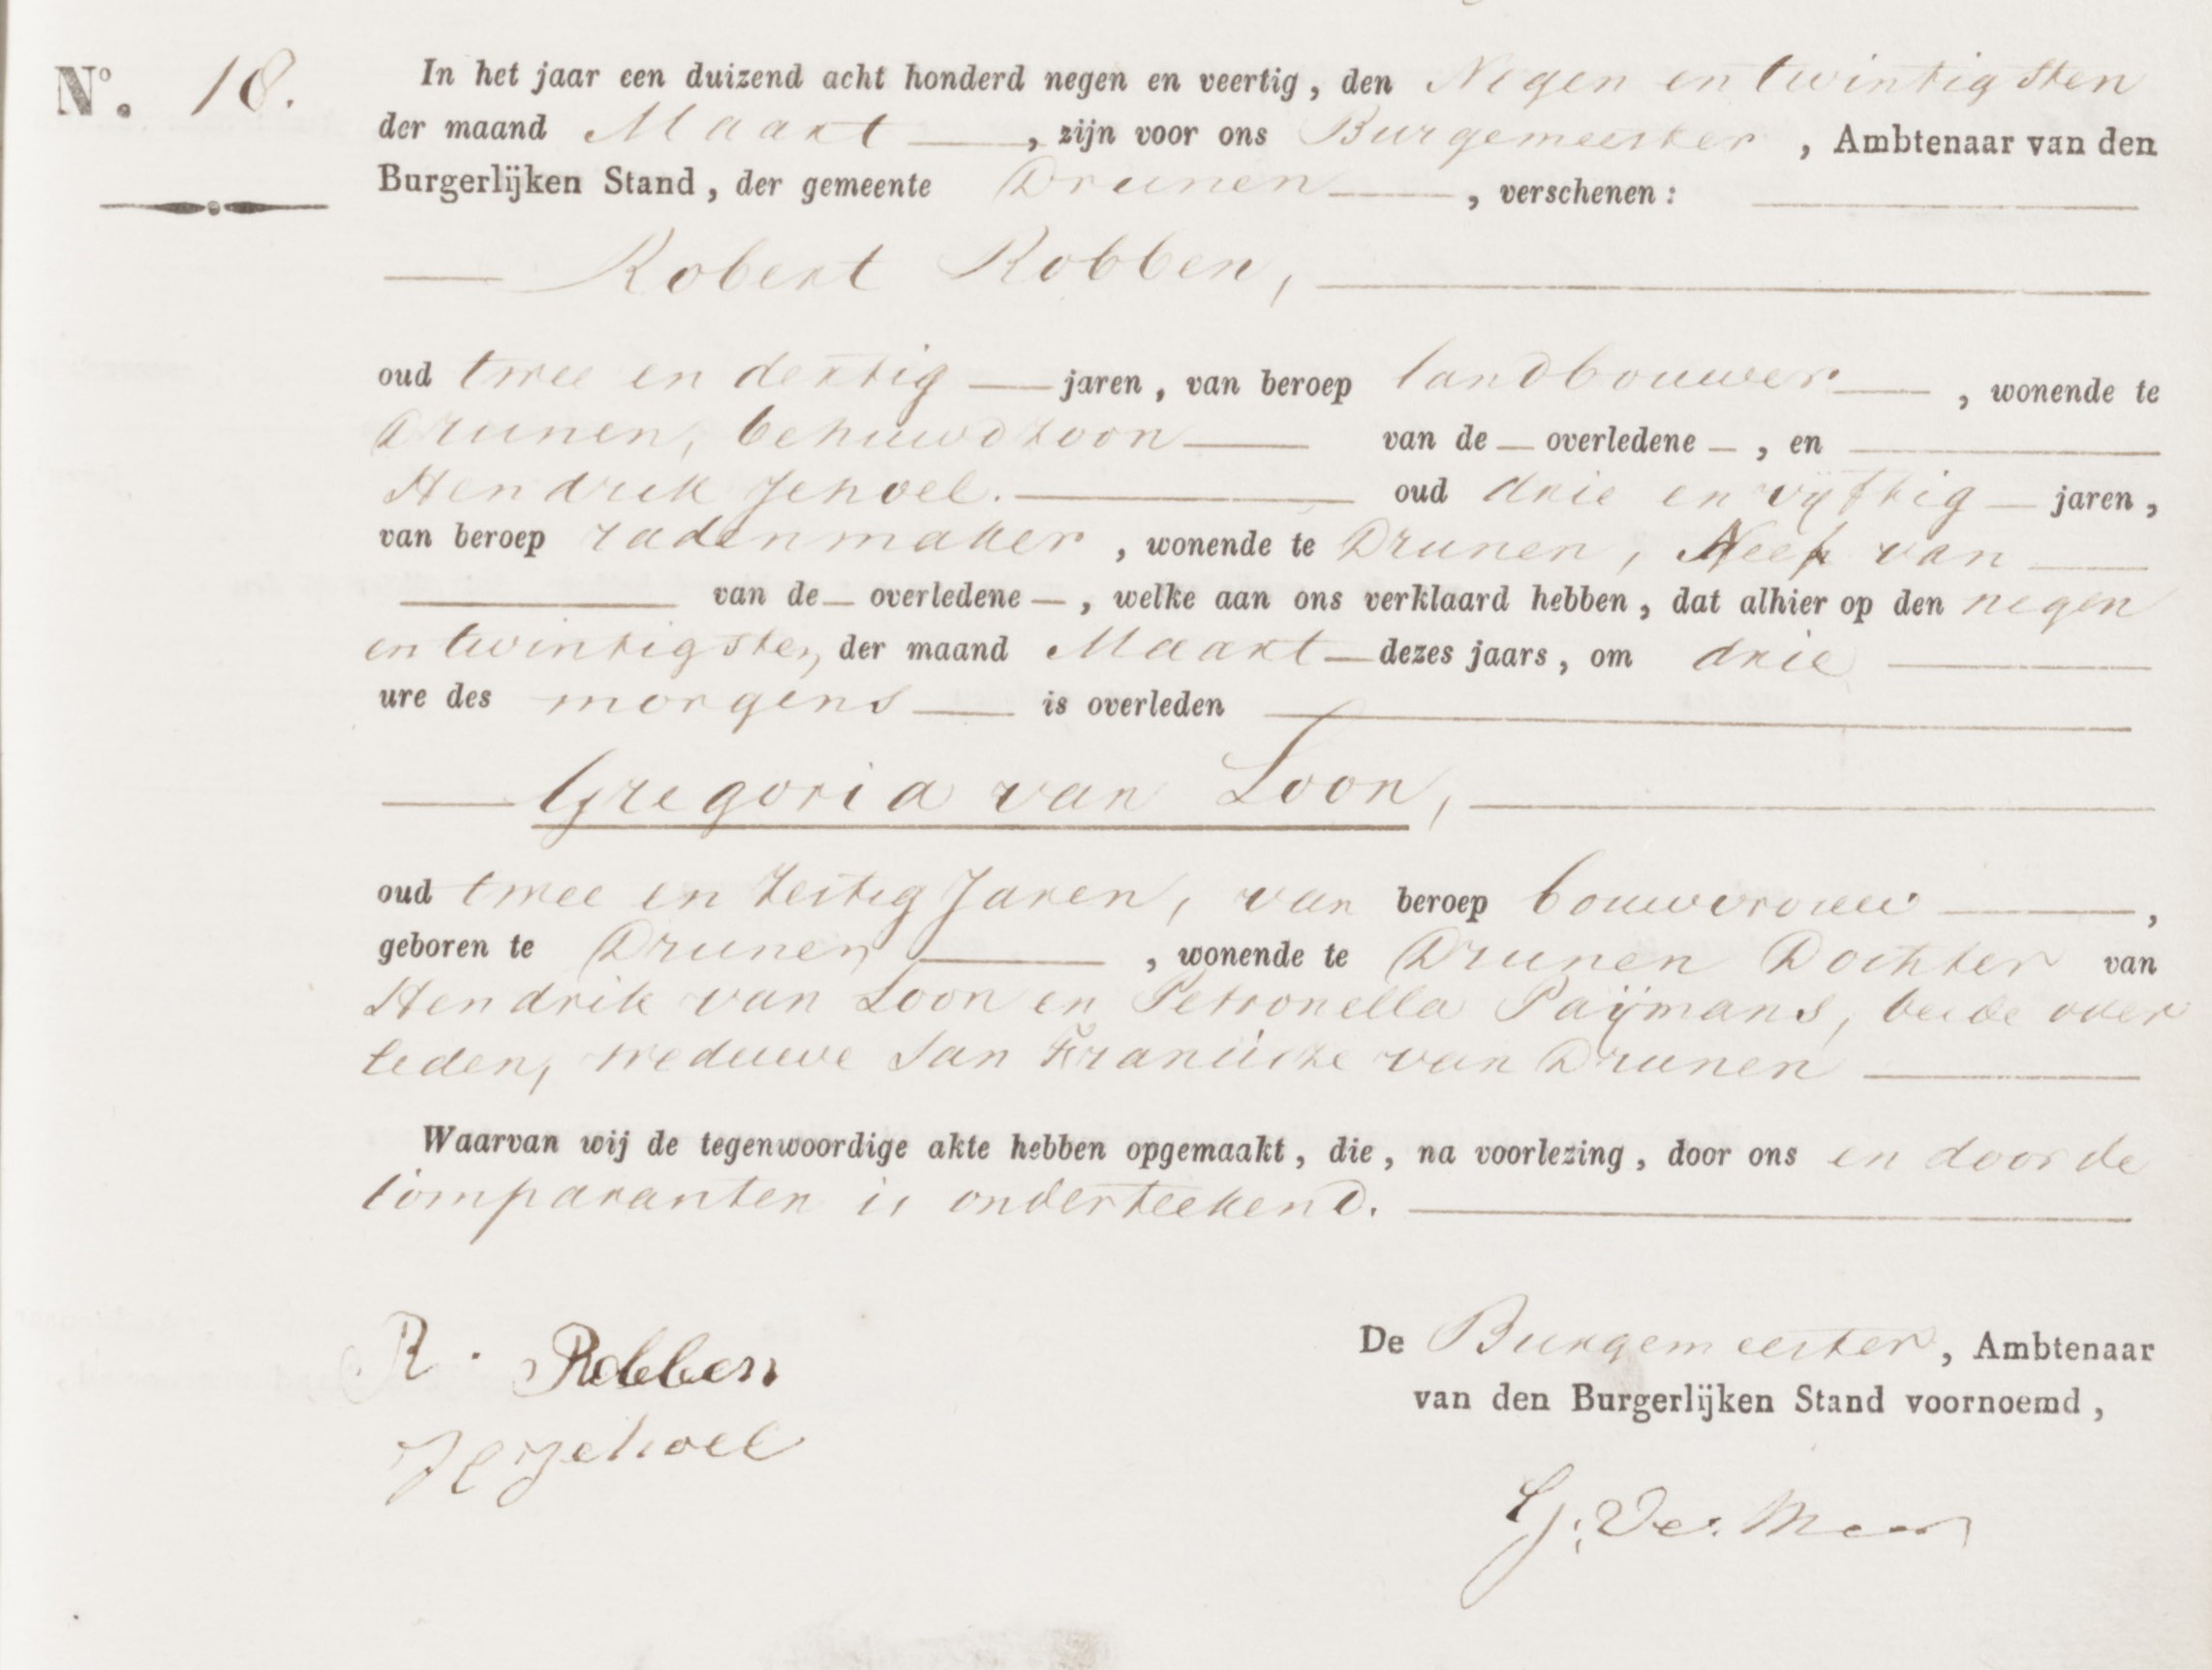 Nº. 18.
In het jaar een duizend acht honderd negen en veertig, den Negen en twintigsten
der maand Maart, zijn voor ons Burgemeester, Ambtenaar van den
Burgerlijken Stand, der gemeente Drunen, verschenen:
Robert Robben,
oud twee en dertig jaren, van beroep landbouwer, wonende te
Drunen, behuwdzoon van de overledene, en
Hendrik Jehoel. oud drie en vijftig jaren,
van beroep radenmaker, wonende te Drunen, Neef van
van de overledene, welke aan ons verklaard hebben, dat alhier op den negen
en twintigsten der maand Maart dezes jaars, om drie
ure des morgens is overleden
Gregoria van Loon,
oud twee en zestig Jaren, van beroep bouwvrouw,
geboren te Drunen, wonende te Drunen Dochter van
Hendrik van Loon en Petronella Paÿmans, beide over
leden, weduwe Jan Francis van Drunen
Waarvan wij de tegenwoordige akte hebben opgemaakt, die, na voorlezing, door ons en door de
Comparanten is onderteekend.
R. Robben
H Jehoel
De Burgemeester, Ambtenaar
van den Burgerlijken Stand voornoemd,